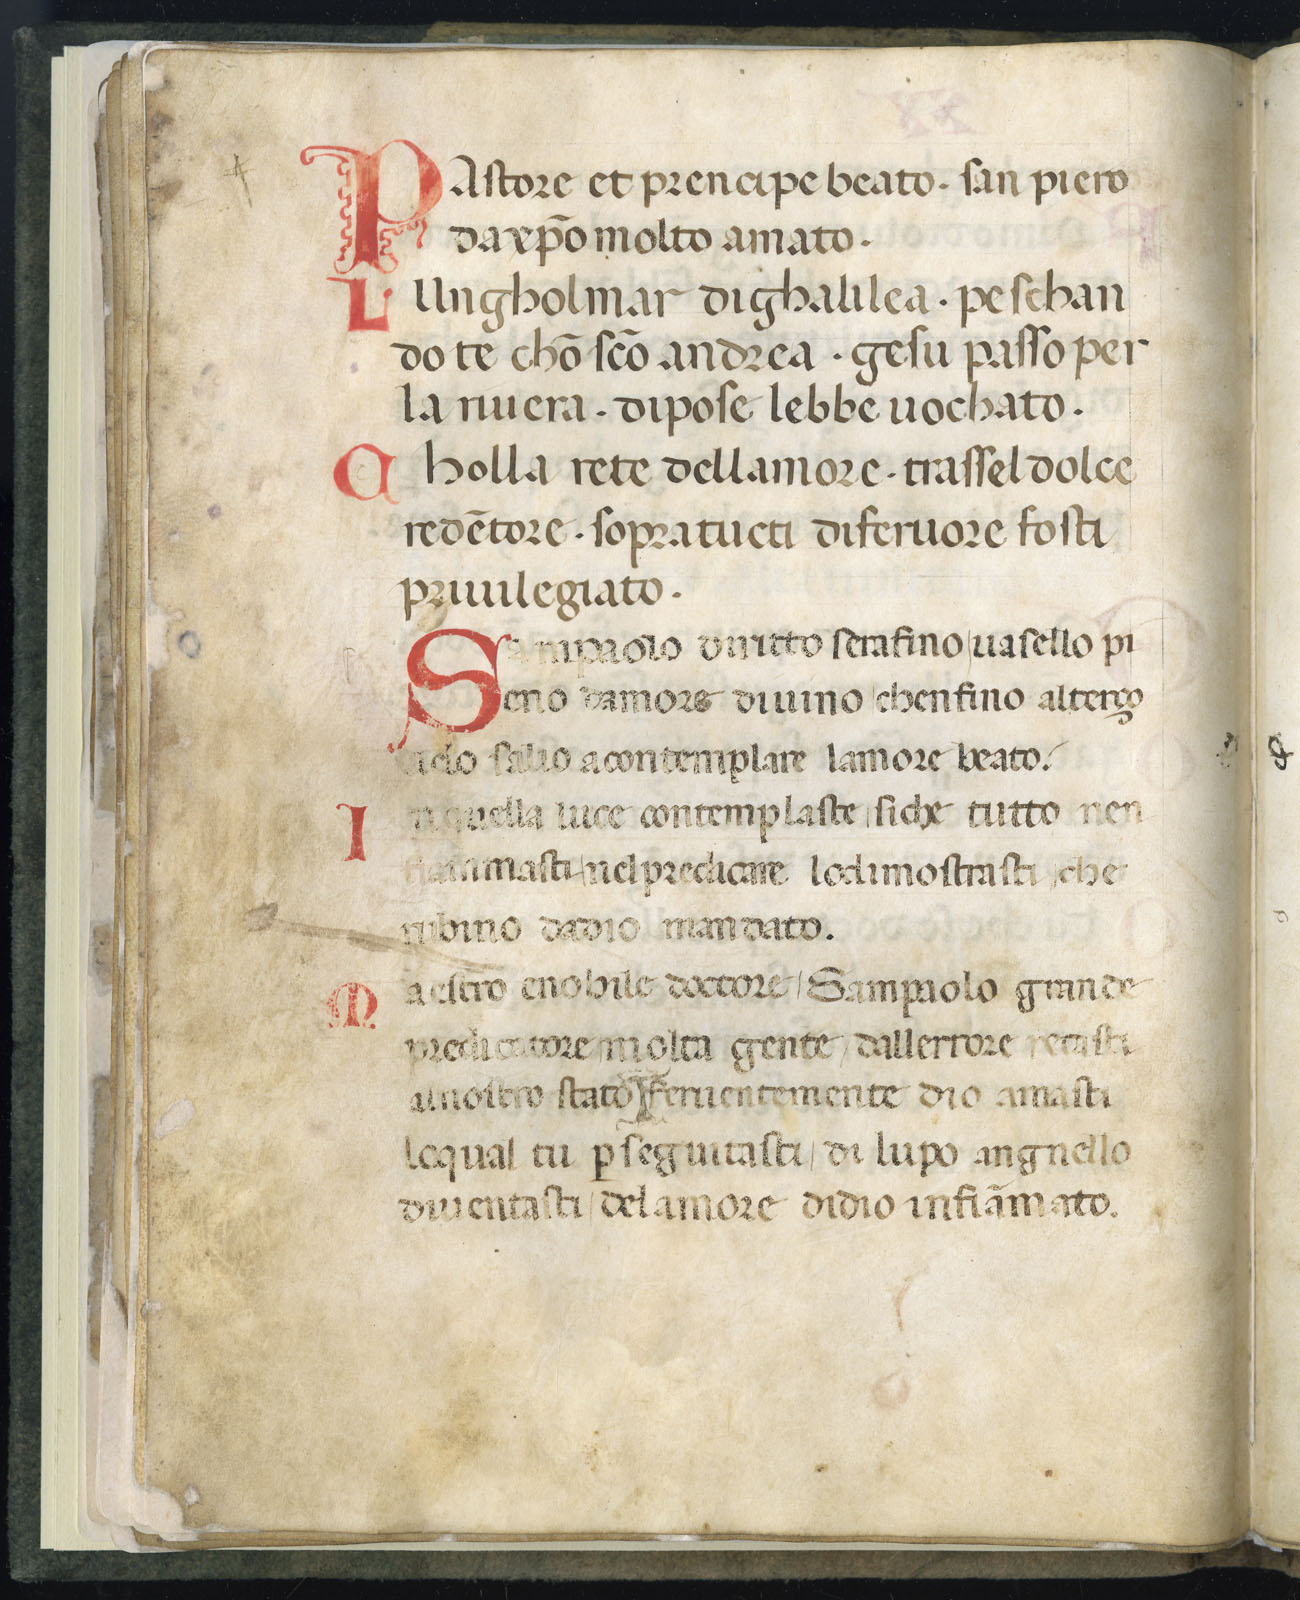 PAstore et prencipe beato · san piero
da xp̄o molto amato ·
LUngholmar dighalilea · peschan
do te chō sc̄o andrea · gesu passo per
la riuera · dipose lebbe uochato ·
Cholla rete dellamore · trassel dolce
redētore · sopratucti diferuore fosti
priuilegiato ·
Sampaolo diritto serafino / uasello pi
eno damore diuino chenfino alterço
cielo salio acontemplare lamore beato.
In quella luce contemplaste / siche tutto nen
fiammasti / nel predicare lo dimostrasti / che
rubino dadio mandato.
Maestro enobile doctore / Sampaolo grande
predicatore / molta gente / dallerrore recasti
alnostro stato Feruentemente dio amasti
loqual tu pseguitasti / di lupo angnello
diuentasti / delamore didio infiāmato.